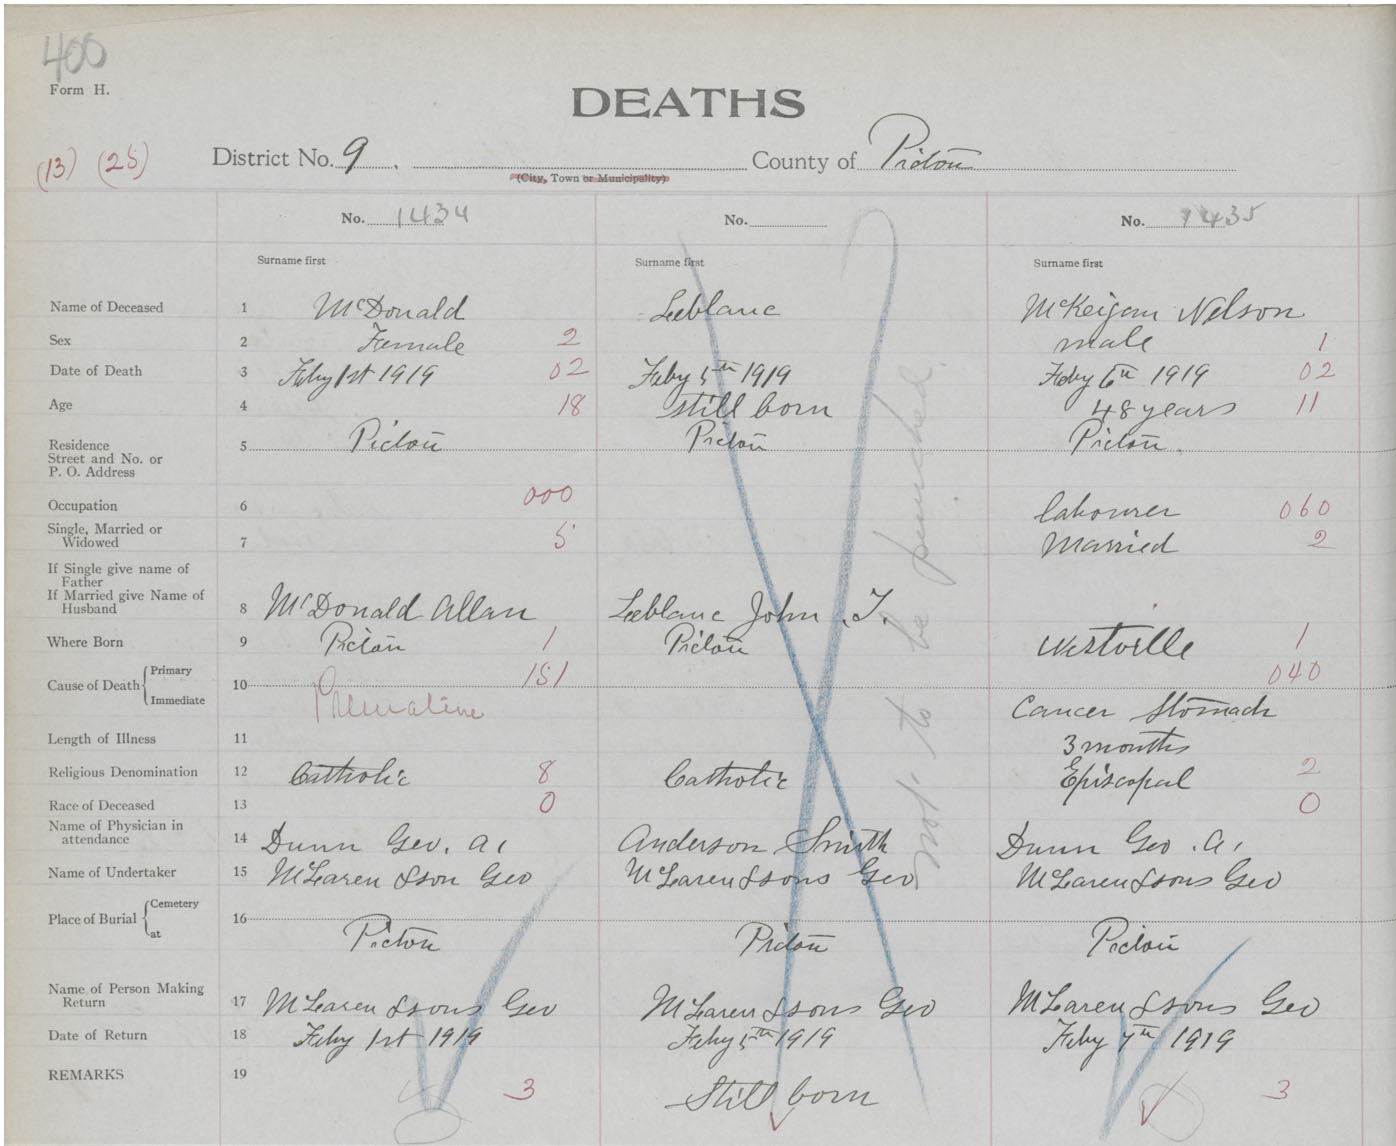 400
Form H.
DEATHS
(13) (25) District No. 9. County of Pictou
(City, Town or Municipality)
No. 1434 No. No. 1435
Surname first Surname first Surname first
Name of Deceased 1 McDonald Leeblanc McKeigan Nelson
Sex 2 Female 2 male 1
Date of Death 3 Feby 1st 1919 02 Feby 5th 1919 Feby 6th 1919 02
Age 4 18 still born 48 years 11
Residence
Street and No. or
P. O. Address 5 Pictou Pictou Pictou.
Occupation 6 000 labourer 060
Single, Married or
Widowed 7 5 Married 2
If Single give name of
Father
If Married give Name of
Husband 8 McDonald Allan Leeblanc John . T.
Where Born 9 Pictou 1 Pictou Westville 1
Cause of Death { Primary
Immediate 10 151 Premature 040 Cancer Stomach
Length of Illness 11 3 months
Religious Denomination 12 Catholic 8 Catholic Episcopal 2
Race of Deceased 13 0 0
Name of Physician in
attendance 14 Dunn Geo. A. Anderson Smith Dunn Geo. A.
Name of Undertaker 15 McLaren & Son Geo McLaren & Sons Geo McLaren & Sons Geo
Place of Burial { Cemetery
at 16 Pictou Pictou Pictou
Name of Person Making
Return 17 McLaren & Sons Geo McLaren & Sons Geo McLaren & Sons Geo
Date of Return 18 Feby 1st 1919 Feby 5th 1919 Feby 7th 1919
REMARKS 19 3 Still born 3
not to be punched.